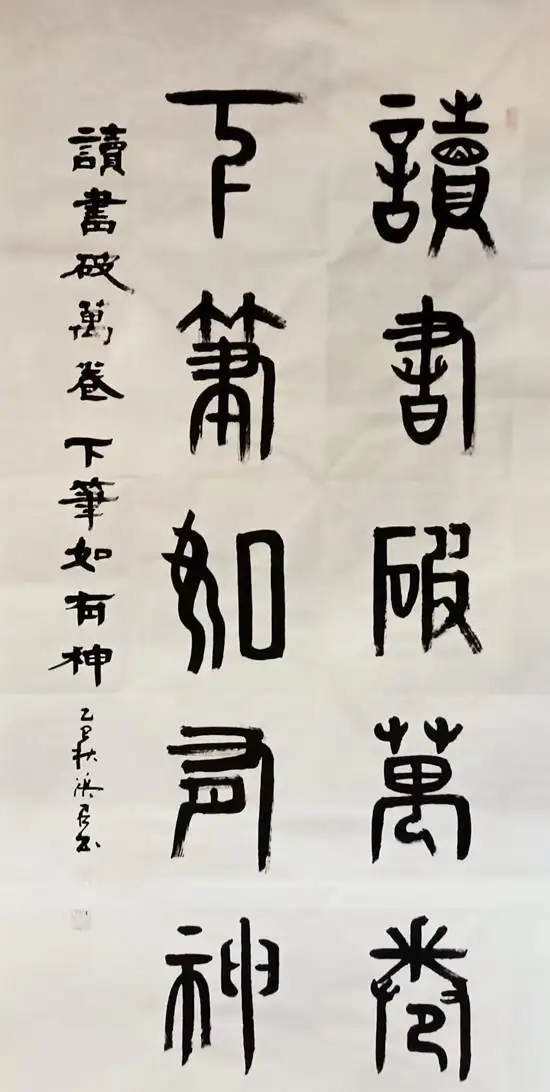 讀書破萬卷
下筆如有神
讀書破萬卷 下筆如有神
乙巳秋